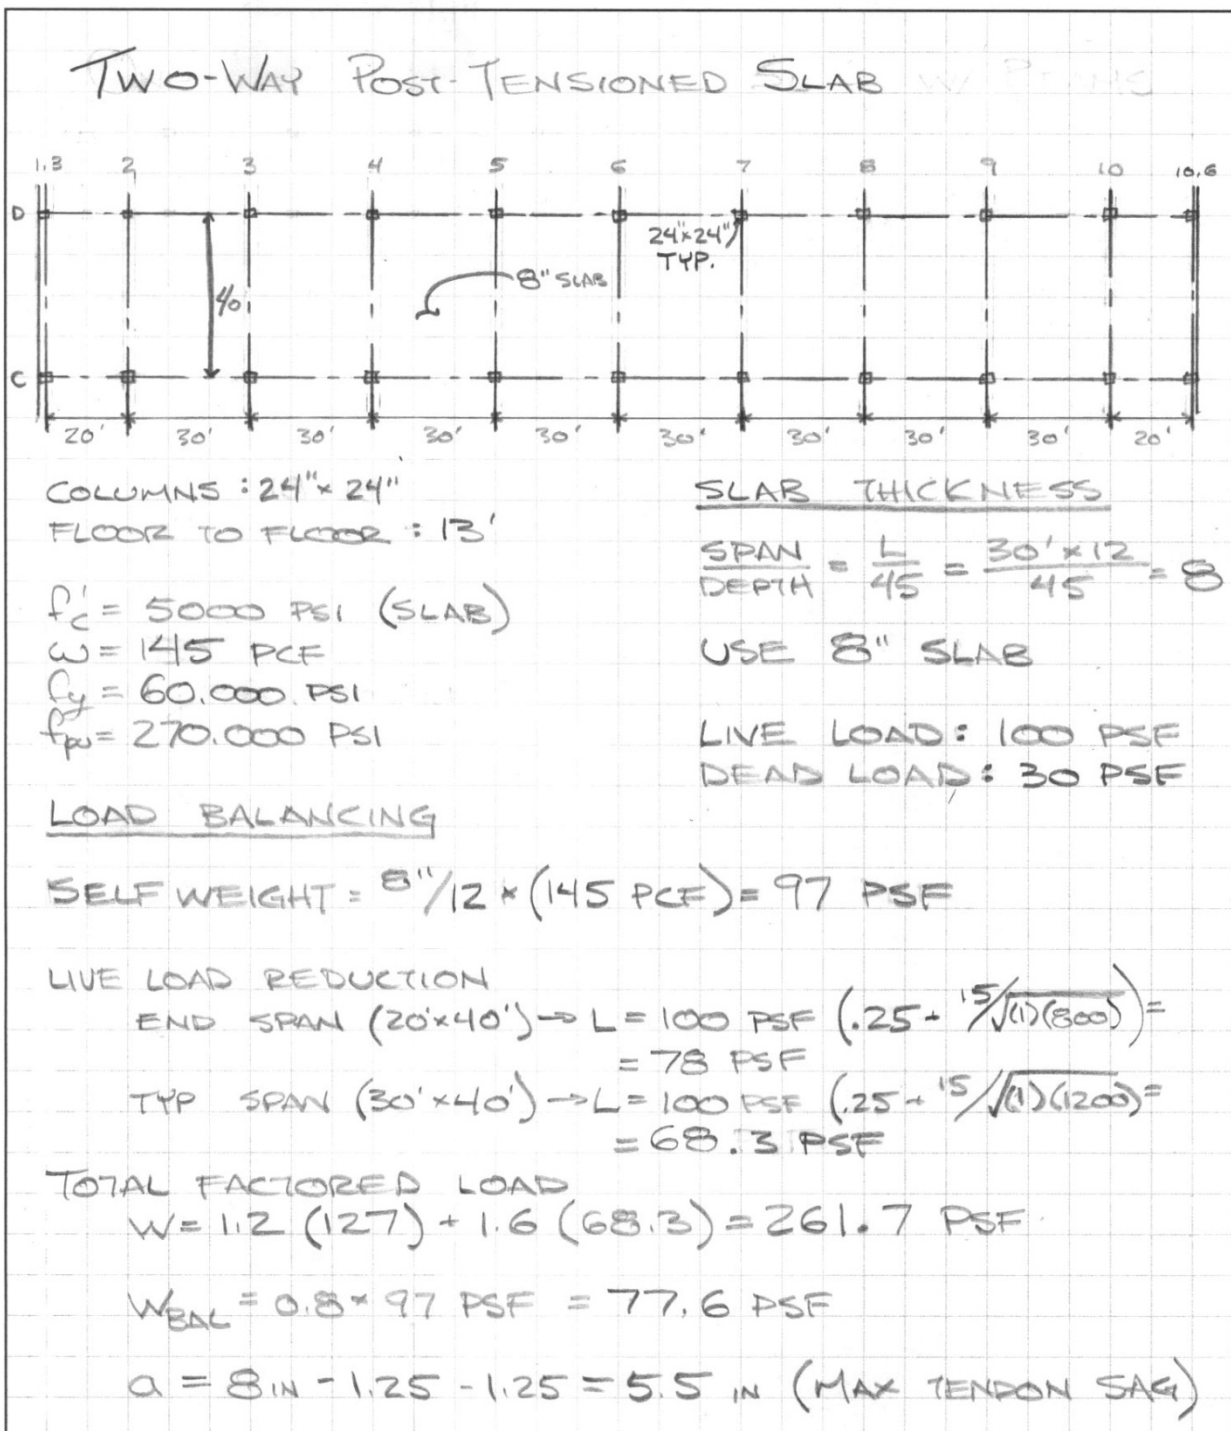 TWO-WAY POST-TENSIONED SLAB
1.3 2 3 4 5 6 7 8 9 10 10.6
D
24"x24"
TYP.
8" SLAB
40'
C
20' 30' 30' 30' 30' 30' 30' 30' 30' 20'
COLUMNS : 24" x 24"
FLOOR TO FLOOR : 13'
f'c = 5000 PSI (SLAB)
ω = 145 PCF
fy = 60.000 PSI
fpu = 270.000 PSI
SLAB THICKNESS
SPAN/DEPTH = L/45 = 30' x 12/45 = 8
USE 8" SLAB
LIVE LOAD: 100 PSF
DEAD LOAD: 30 PSF
LOAD BALANCING
SELF WEIGHT = 8"/12 x (145 PCF) = 97 PSF
LIVE LOAD REDUCTION
END SPAN (20'x40') → L = 100 PSF (.25 + 15/√(1)(800)) =
= 78 PSF
TYP SPAN (30'x40') → L = 100 PSF (.25 + 15/√(1)(1200) =
= 68.3 PSF
TOTAL FACTORED LOAD
W = 1.2 (127) + 1.6 (68.3) = 261.7 PSF
WBAL = 0.8 x 97 PSF = 77.6 PSF
a = 8 IN - 1.25 - 1.25 = 5.5 IN (MAX TENDON SAG)